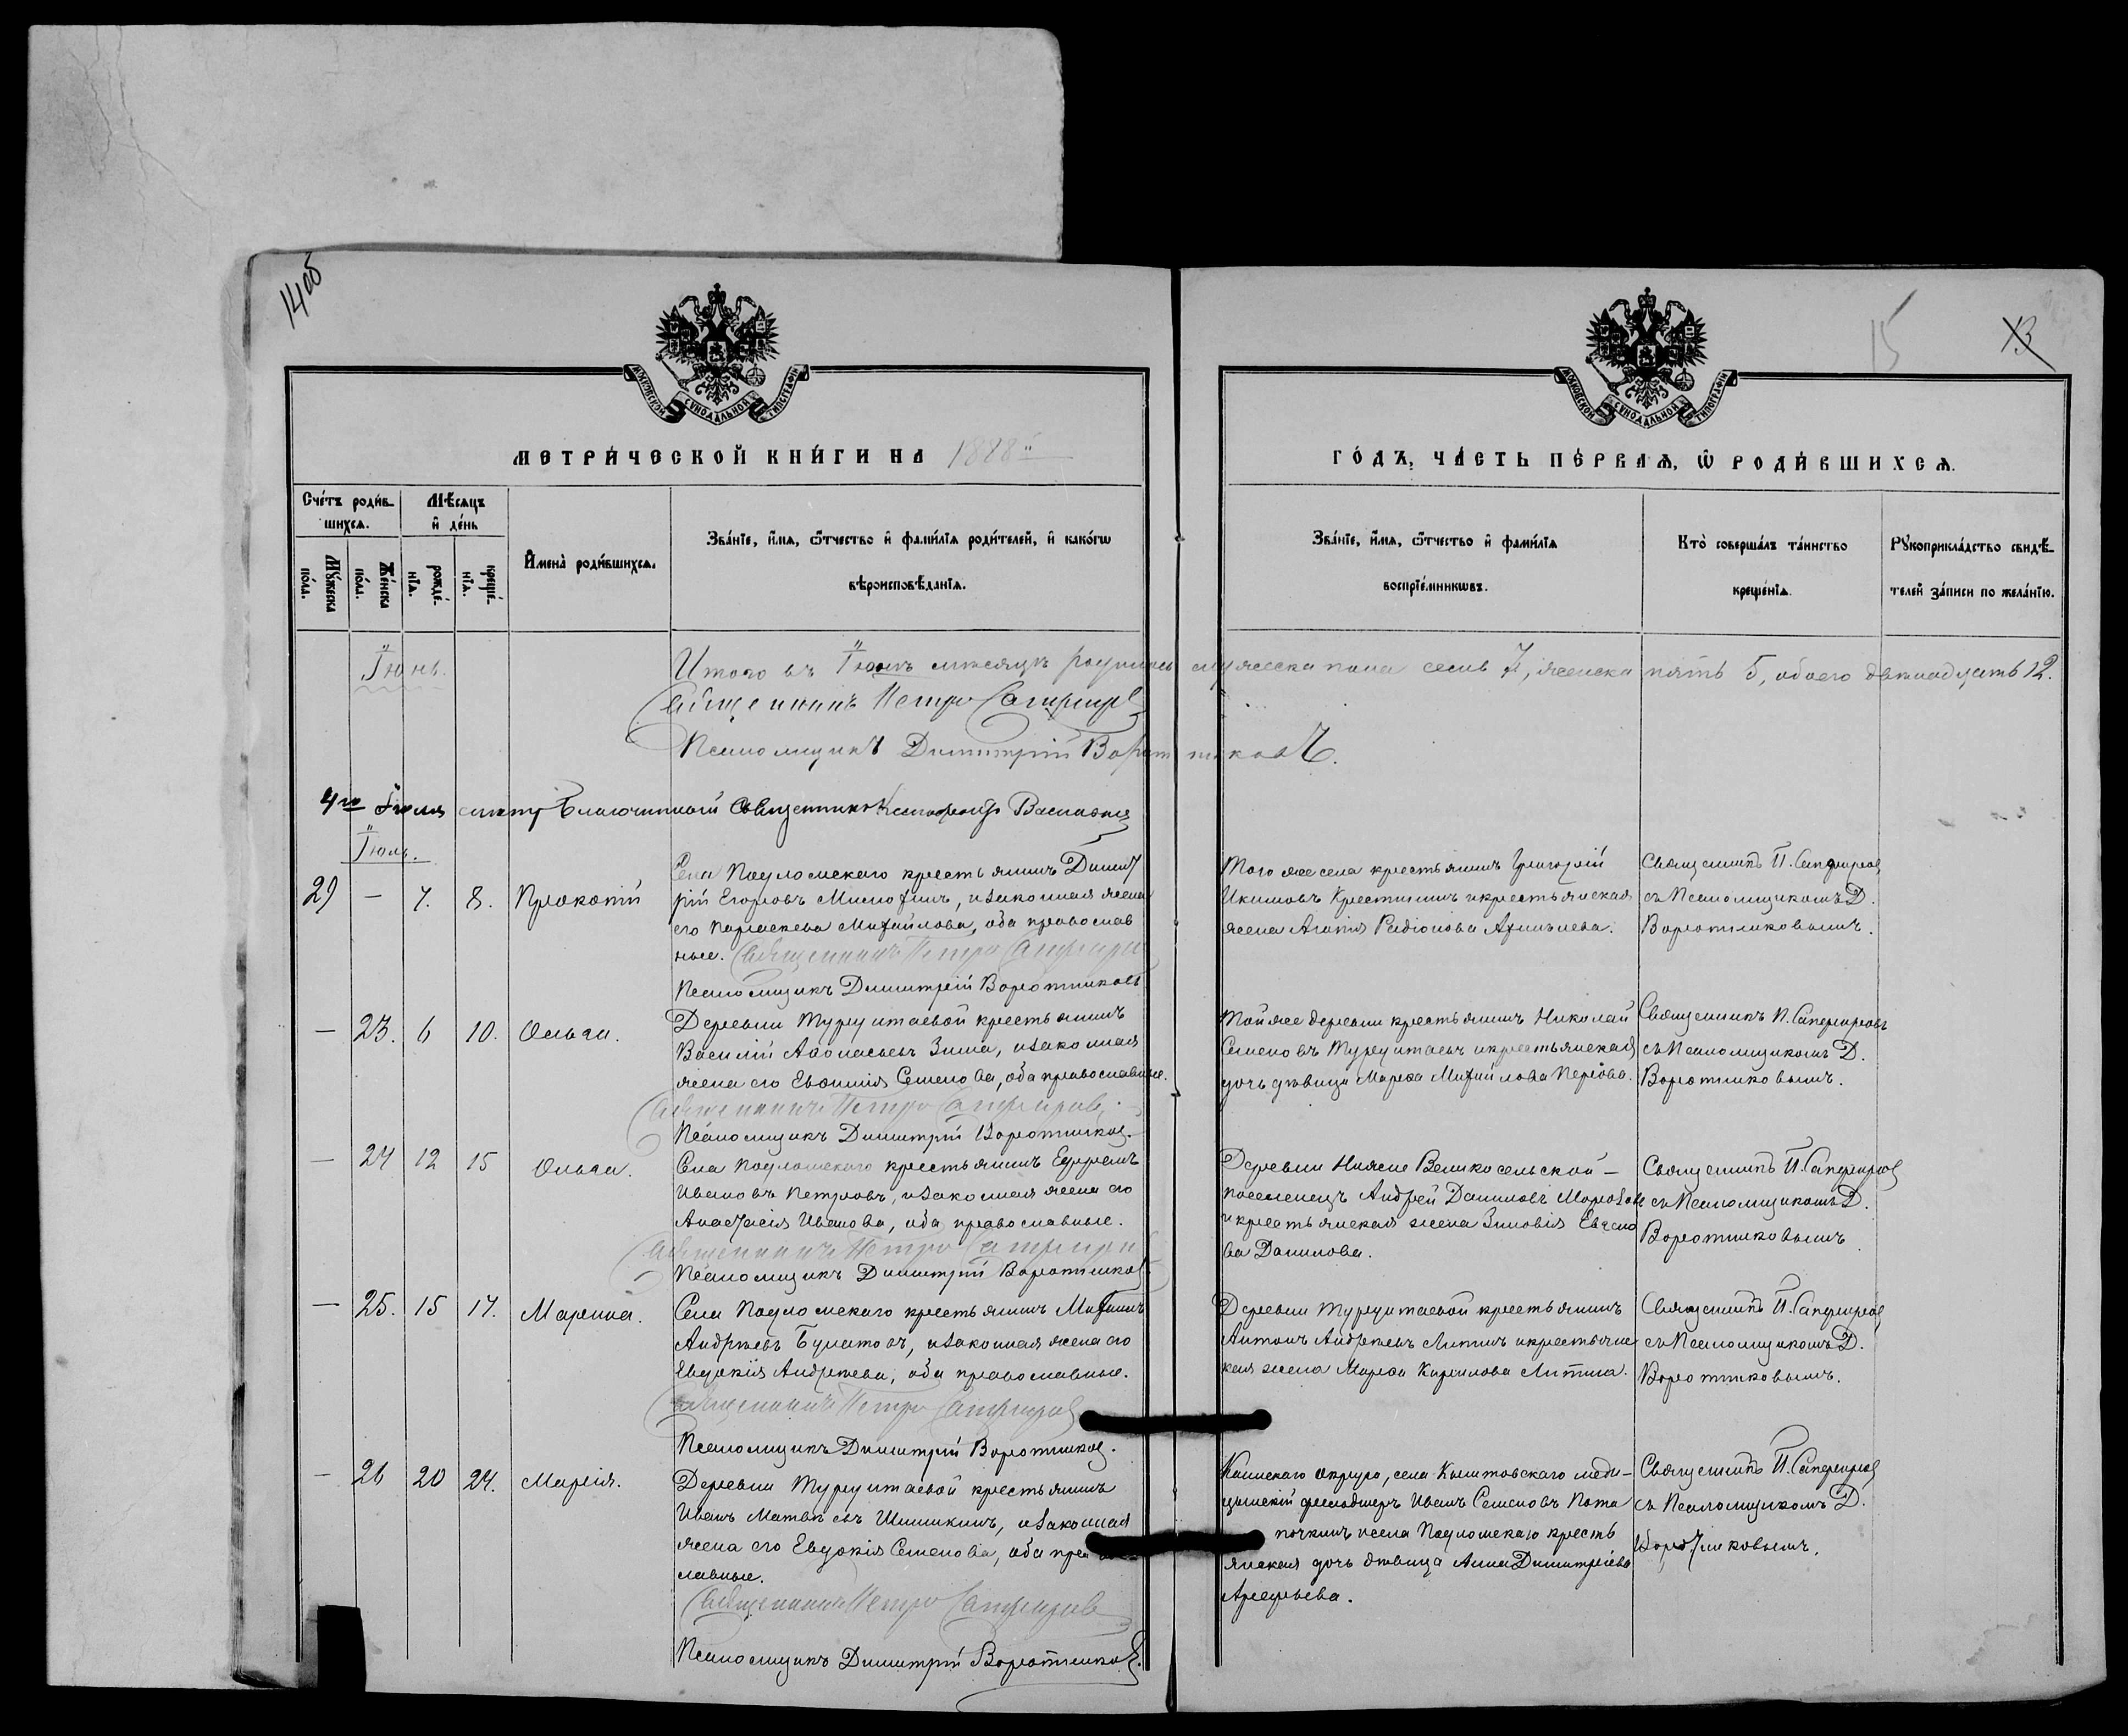 14 об
15
13
МОСКОВСКОЙ СѴНОДАЛЬНОЙ ТИПОГРАФІИ
МОСКОВСКОЙ СѴНОДАЛЬНОЙ ТИПОГРАФІИ
МЕТРИ́ЧЕСКОЙ КНИ́ГИ НА 1888й
ГО́ДЪ, ЧА́СТЬ ПЕ́РВАѦ, Ѡ҆ РОДИ́ВШИХСѦ.
Сче́тъ роди́в-
шихсѧ.
Мѣ́сѧцъ
и҆ де́нь
Мꙋ́жеска
по́ла.
Же́нска
по́ла.
рожде́-
нїѧ.
креще́-
нїѧ.
И҆мена̀ роди́вшихсѧ.
Зва́нїе, и҆́мѧ, ѻ҆́тчество и҆ фами́лїѧ роди́телей, и҆ како́гѡ
вѣроисповѣ́данїѧ.
Зва́нїе, и҆́мѧ, ѻ҆́тчество и҆ фами́лїѧ
воспрїе́мникѡвъ.
Кто̀ соверша́лъ та́инство
креще́нїѧ.
Рꙋкоприкла́дство свидѣ́-
телей за́писи по жела́нїю.
Іюнь.
Итого въ Іюнѣ мѣсяцѣ родилось мужеска пола семь 7, женска пять 5, обоего двѣнадцать 12.
Священникъ Петръ Сапфировъ
Псаломщикъ Димитрій Воротниковъ.
4го Іюля Благочинный Священникъ
Іюль.
29 — 7. 8. Прокопій
Села Тоуломскаго крестьянинъ Димит
рій Егоровъ Милюхинъ, изаконная жена
его Параскева Михайлова, оба православ
ные. Священникъ Петръ Сапфировъ
Псаломщикъ Димитрій Воротниковъ
Того же села крестьянинъ Григорій
Икимовъ Крестининъ икрестьянская
жена Агапія Радіонова
Священникъ П. Сапфировъ
съ Псаломщикомъ Д.
Воротниковымъ.
— 23. 6 10. Ольга.
Деревни Турунтаевой крестьянинъ
Василій Аѳонасьевъ Зима, изаконная
жена его Евѳимія Семенова, оба православные.
Священникъ Петръ Сапфировъ
Псаломщикъ Димитрій Воротниковъ.
Той же деревни крестьянинъ Николай
Семеновъ Турунтаевъ икрестьянская
дочь дѣвица Марѳа Михайлова Перова.
Священникъ П. Сапфировъ
съ Псаломщикомъ Д.
Воротниковымъ.
— 24 12 15 Ольга.
Села крестьянинъ Ефремъ
Ивановъ Петровъ, изаконная жена его
Анастасія Иванова, оба православные.
Священникъ Петръ Сапфировъ
Псаломщикъ Димитрій Воротниковъ.
Деревни Нижне Великосельской —
поселенецъ Андрей Даниловъ Морозовъ
икрестьянская жена Зиновія
ва Данилова.
Священникъ П. Сапфировъ
съ Псаломщикомъ Д.
Воротниковымъ
— 25. 15 17. Марина.
Села крестьянинъ Михаилъ
Андреевъ Булатовъ, изаконная жена его
Евдокія Андреева, оба православные.
Священникъ Петръ Сапфировъ
Псаломщикъ Димитрій Воротниковъ.
Деревни Турунтаевой крестьянинъ
Антонъ Андреевъ Литинъ икрестьянс
кая жена Марѳа Кирилова Литина.
Священникъ П. Сапфировъ
съ Псаломщикомъ Д.
Воротниковымъ.
— 26 20 24. Марія.
Деревни Турунтаевой крестьянинъ
Иванъ Матвѣевъ Шишкинъ, изаконная
жена его Евдокія Семенова, оба право
славные.
Священникъ Петръ Сапфировъ
Псаломщикъ Димитрій Воротниковъ.
Каинскаго округа, села Кыштовскаго меди-
цынскій фельдшеръ Иванъ Семеновъ Пота
почкинъ исела кресть
янская дочь дѣвица Анна Димитріева
Арефьева.
Священникъ П. Сапфировъ
съ Псаломщикомъ Д.
Воротниковымъ.